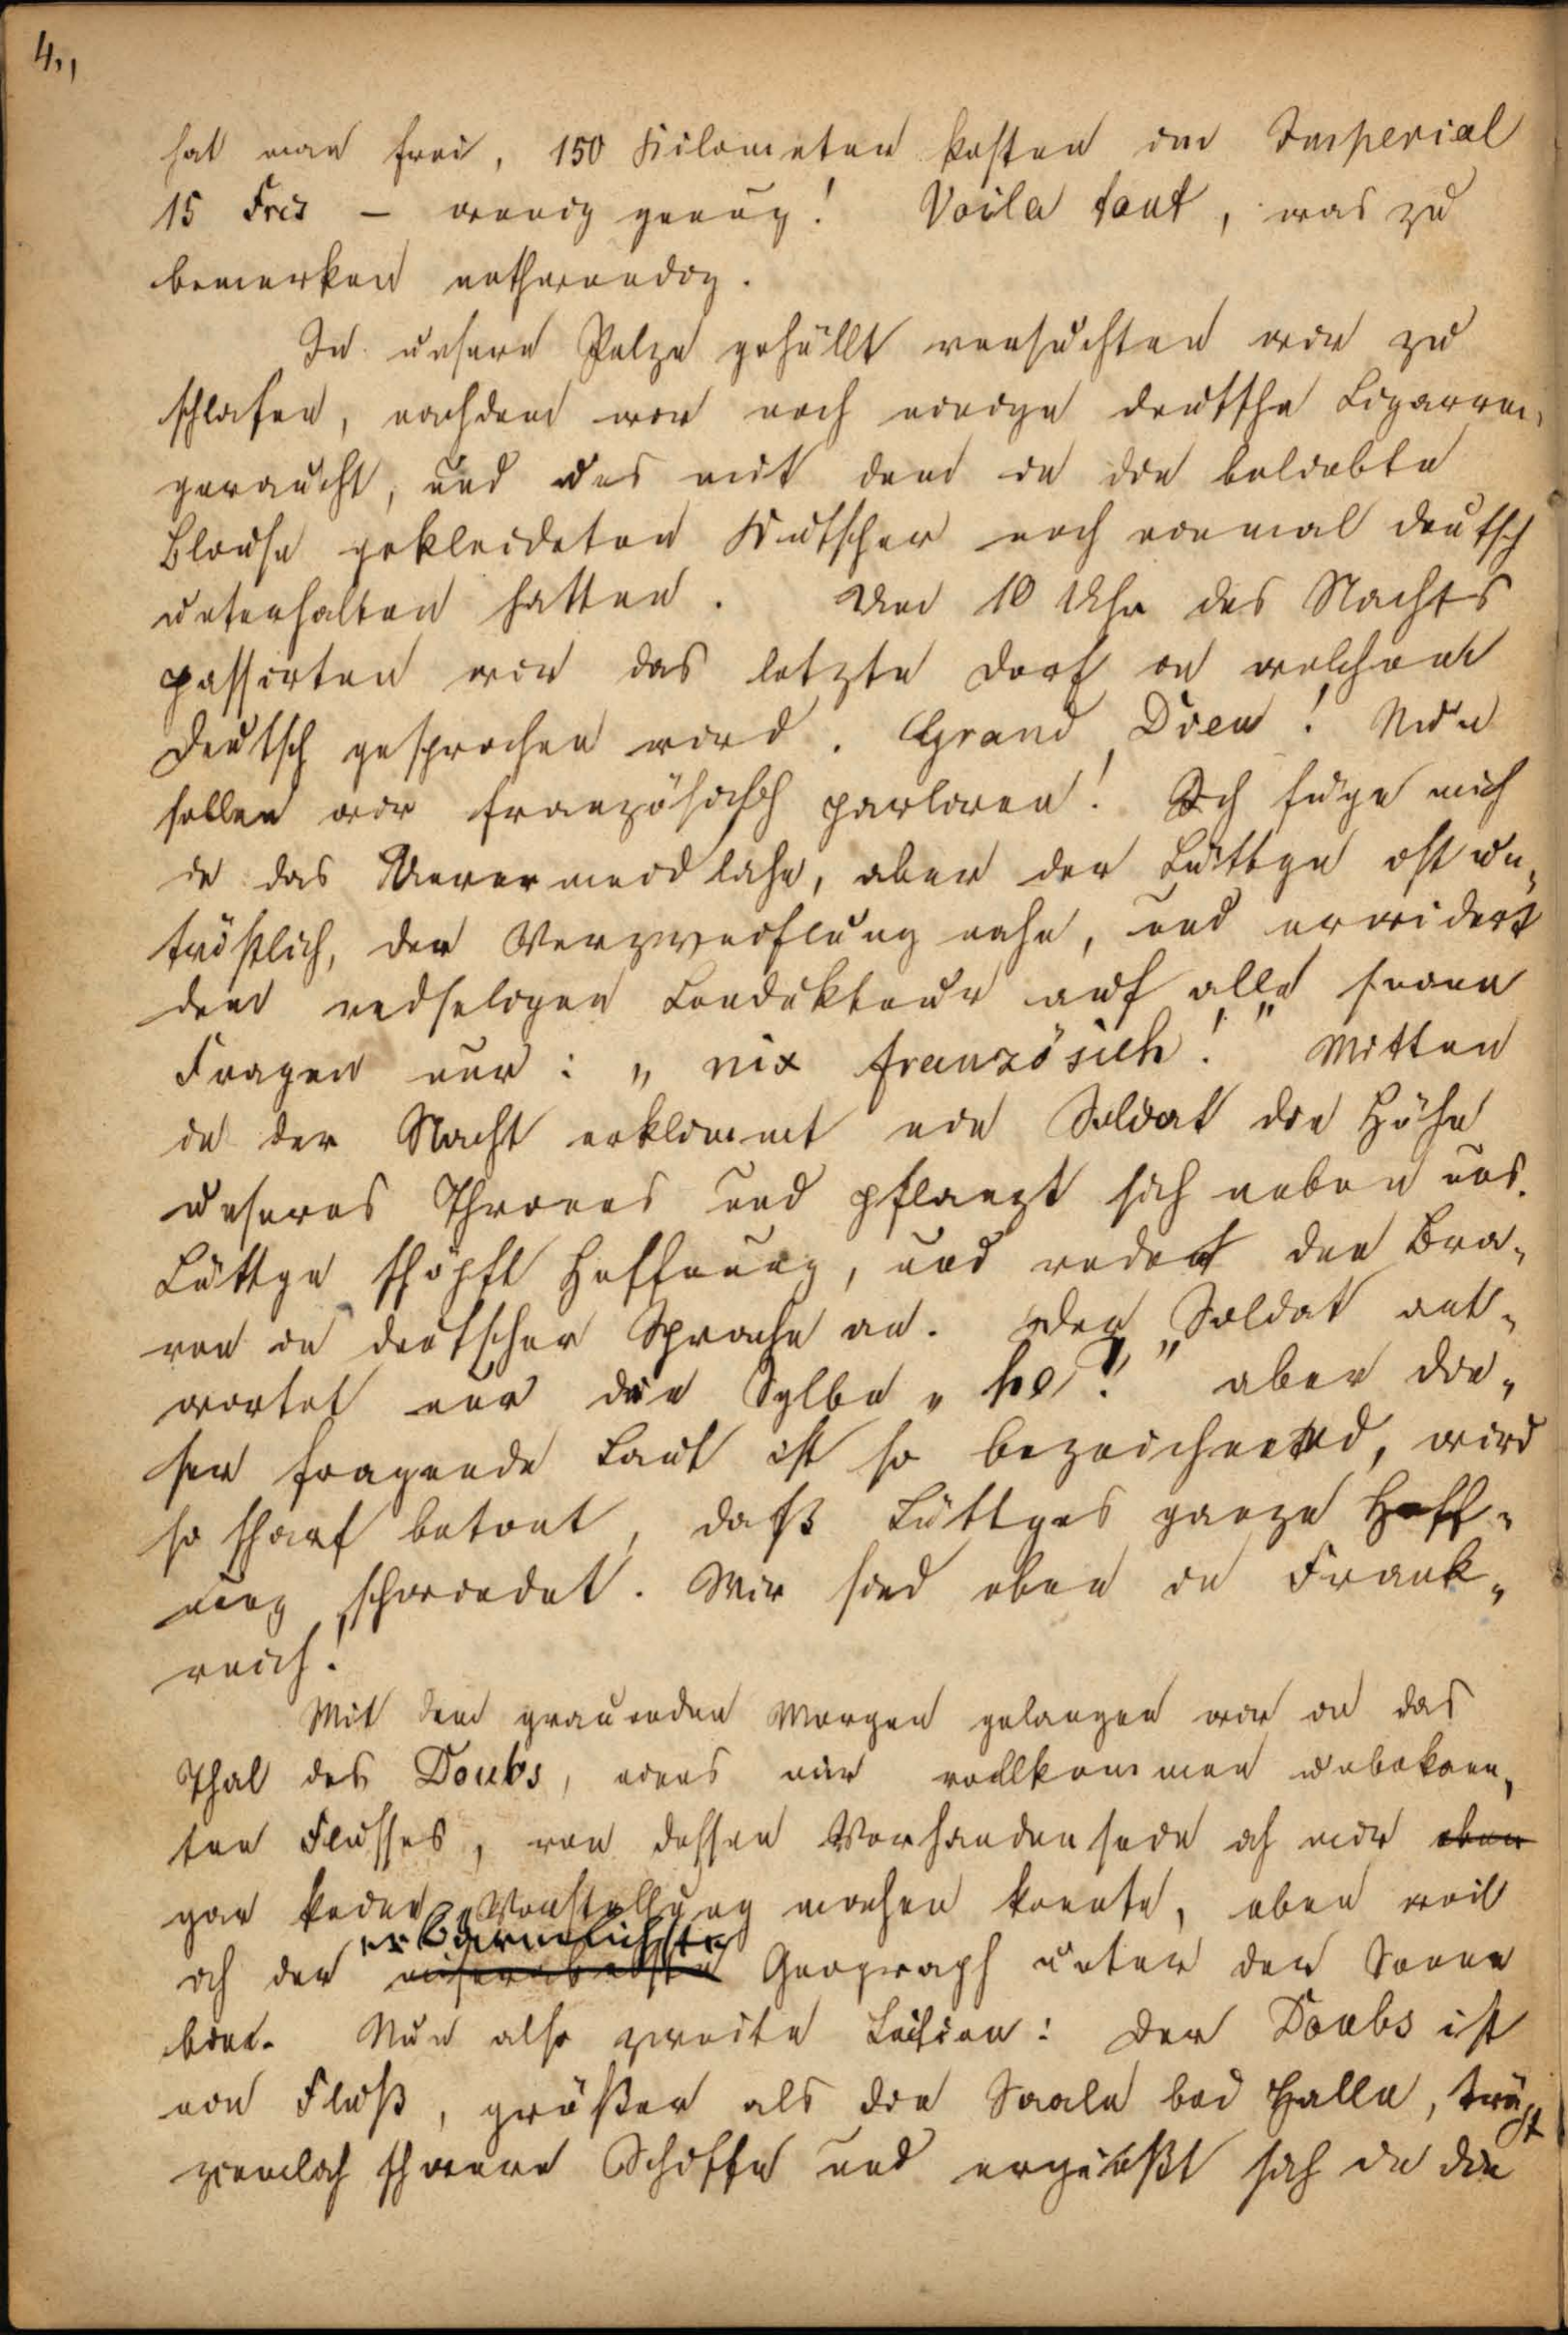 4.,
hat man frei, 150 Kilometer kosten im Imperial
15 Frcs – wenig genug! Voila tout, was zu
bemerken nothwendig.
In unsere Pelze gehüllt versuchten wir zu
schlafen, nachdem wir noch einige deutsche Cigarren
geraucht, und uns mit dem in die beliebte
Blouse gekleideten Kutscher noch einmal deutsch
unterhalten hatten. Um 10 Uhr des Nachts
passirten wir das letzte Dorf in welchem
deutsch gesprochen wird. Grand Dieu! Nun
sollen wir französisch parliren! Ich füge mich
in das Unvermeidliche, aber der Lüttge ist un„
tröstlich, der Verzweiflung nahe, und erwidert
dem redseligen Conducteur auf alle seine
Fragen nur: „nix französich!" Mitten
in der Nacht erklimmt ein Soldat die Höhe
unseres Thrones und pflanzt sich neben uns.
Lüttge schöpft Hoffnung, und redet den Bra„
ven in deutscher Sprache an. Der Soldat ant„
wortet nur die Sylbe „he?!" aber die„
ser fragende Laut ist so bezeichnend, wird
so scharf betont, daß Lüttges ganze Hoff„
nung schwindet. Wir sind eben in Frank„
reich!
Mit dem grauenden Morgen gelangen wir in das
Thal des Doubs, eines mir vollkommen unbekann„
ten Flusses, von dessen Vorhandensein ich mir eben
gar keine Vorstellung machen konnte, eben weil
erbärmlichste
ich der miserabelste Geograph unter der Sonne
bin. Nun also zweite Lection: Der Doubs ist
ein Fluß, größer als die Saale bei Halle, trägt
ziemlich schwere Schiffe und ergießt sich in die